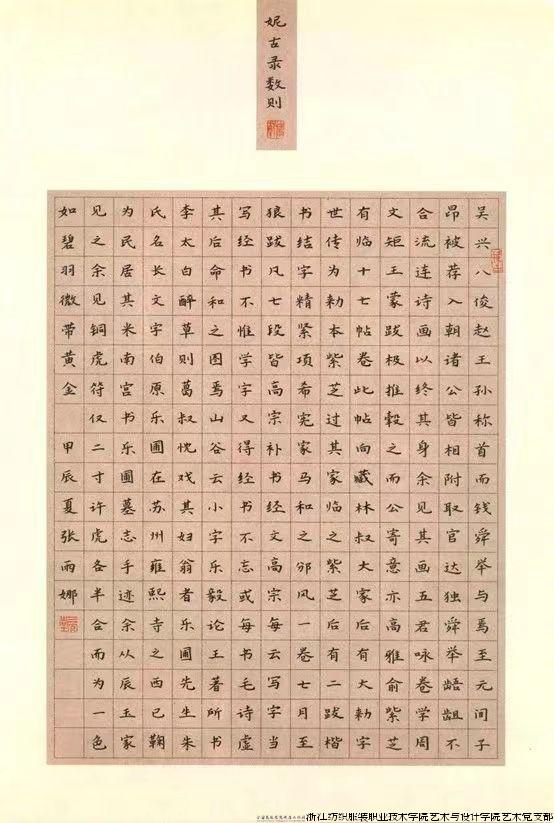 妮古录数则
吴兴八俊赵王孙称首而钱舜举与焉至元间子
昂被荐入朝诸公皆相附取官达独舜举龉龃不
合流连诗画以终其身余见其画五君咏卷学周
文矩王蒙跋极推毂之而公寄意亦高雅俞紫芝
有临十七帖卷此帖向藏林叔大家后有大勑字
世传为勑本紫芝过其家临之紫芝后有二跋楷
书结字精紧项希宪家马和之邠风一卷七月至
狼跋凡七段皆高宗补书经文高宗每云写字当
写经书不惟学字又得经书不志或每书毛诗虚
其后命和之图焉山谷云小字乐毅论王著所书
李太白醉草则葛叔忱戏其妇翁者乐圃先生朱
氏名长文字伯原乐圃在苏州雍熙寺之西已鞠
为民居其米南宫书乐圃墓志手迹余从辰玉家
见之余见铜虎符仅二寸许虎各半合而为一色
如碧羽微带黄金 甲辰夏张雨娜
浙江纺织服装职业技术学院艺术与设计学院艺术党支部